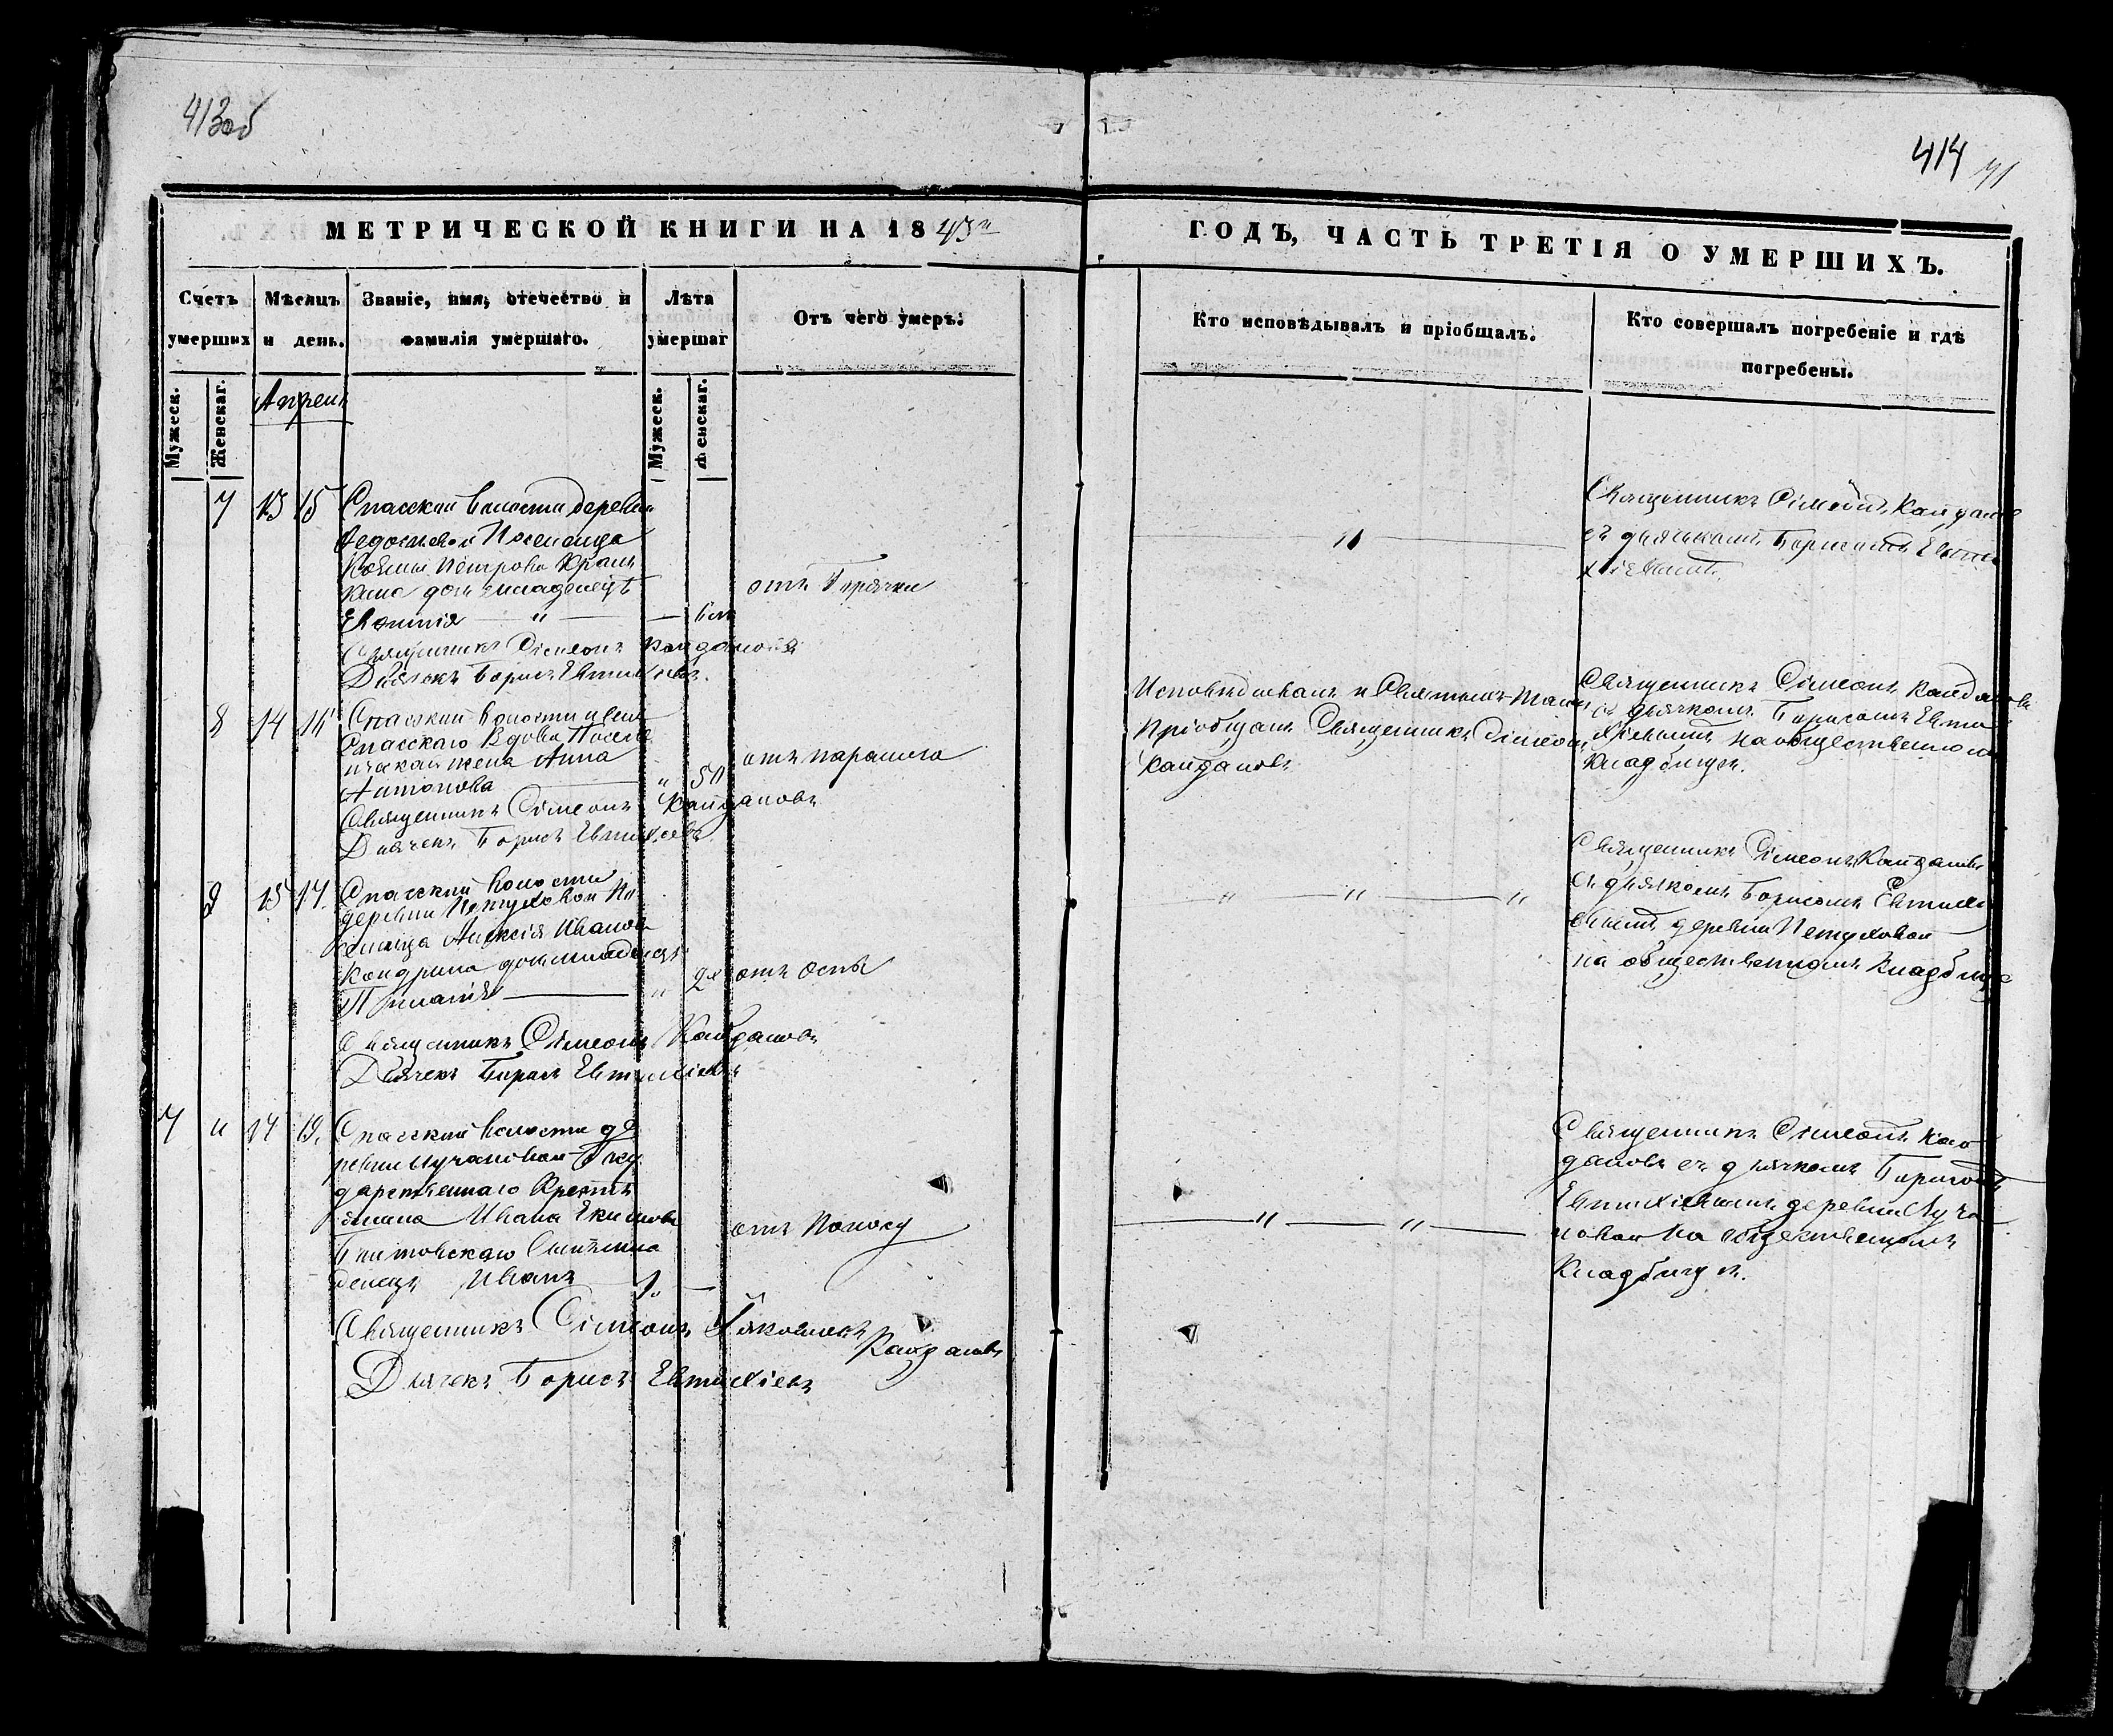 413об
414
МЕТРИЧЕСКОЙ КНИГИ НА 1843й
ГОДЪ, ЧАСТЬ ТРЕТІЯ О УМЕРШИХЪ.
Счетъ умерших
Мѣсяцъ и день.
Званіе, имя, отечество и фамилія умершаго.
Лѣта умершаг
Отъ чего умеръ:
Кто исповѣдывалъ и пріобщалъ.
Кто совершалъ погребеніе и гдѣ погребены.
Мужеск.
Женскаг.
Мужеск.
Женскаг.
Апрель
7 13 15 Спасской волости деревни
Поселенца
Козьмы Петрова
дочь младенецъ
Евфимія
Священникъ Сімеонъ Кайдановъ
Дьячекъ Борисъ Евтихіевъ.
отъ Горячки
Священникъ Сімеонъ Кайдановъ
съ дьячькомъ Борисомъ Евти
хіевымъ
8 14 14 Спасской волости села
Спасскаго Вдова Поселе
нческая жена Анна
Антонова 50
Священникъ Сімеонъ Кайдановъ
Дьячекъ Борисъ Евтихіевъ
отъ паралича
Исповѣдывалъ и Святыхъ Таинъ
Пріобщалъ Священникъ Сімеонъ
Кайдановъ
Священникъ Сімеонъ Кайдановъ
съ дьячкомъ Борисомъ Евти
хіевымъ на общественномъ
Кладбищѣ.
9 15 17. Спасской волости
деревни Петуховой По
селенца Алексія Иванова
Кондрина дочь младенецъ
2 отъ оспы
Священникъ Сімеонъ Кайдановъ
Дьячекъ Борисъ Евтихіевъ
Священникъ Сімеонъ Кайдановъ
съ дьячкомъ Борисомъ Евтихі
евымъ деревни Петуховой
на общественномъ Кладбище
7 17 19. Спасской волости де
ревни Лучановой Госу
дарственнаго Кресть
янина Ивана Екимова
сынъ мла
денецъ Иванъ 1.
отъ Поносу
Священникъ Сімеонъ Іяковлевъ
Кайдановъ
Дьячекъ Борисъ Евтихіевъ
Священникъ Сімеонъ Кай
дановъ съ дьячкомъ Борисомъ
Евтихіевымъ деревни Луча
новой на общественномъ
Кладбищѣ.